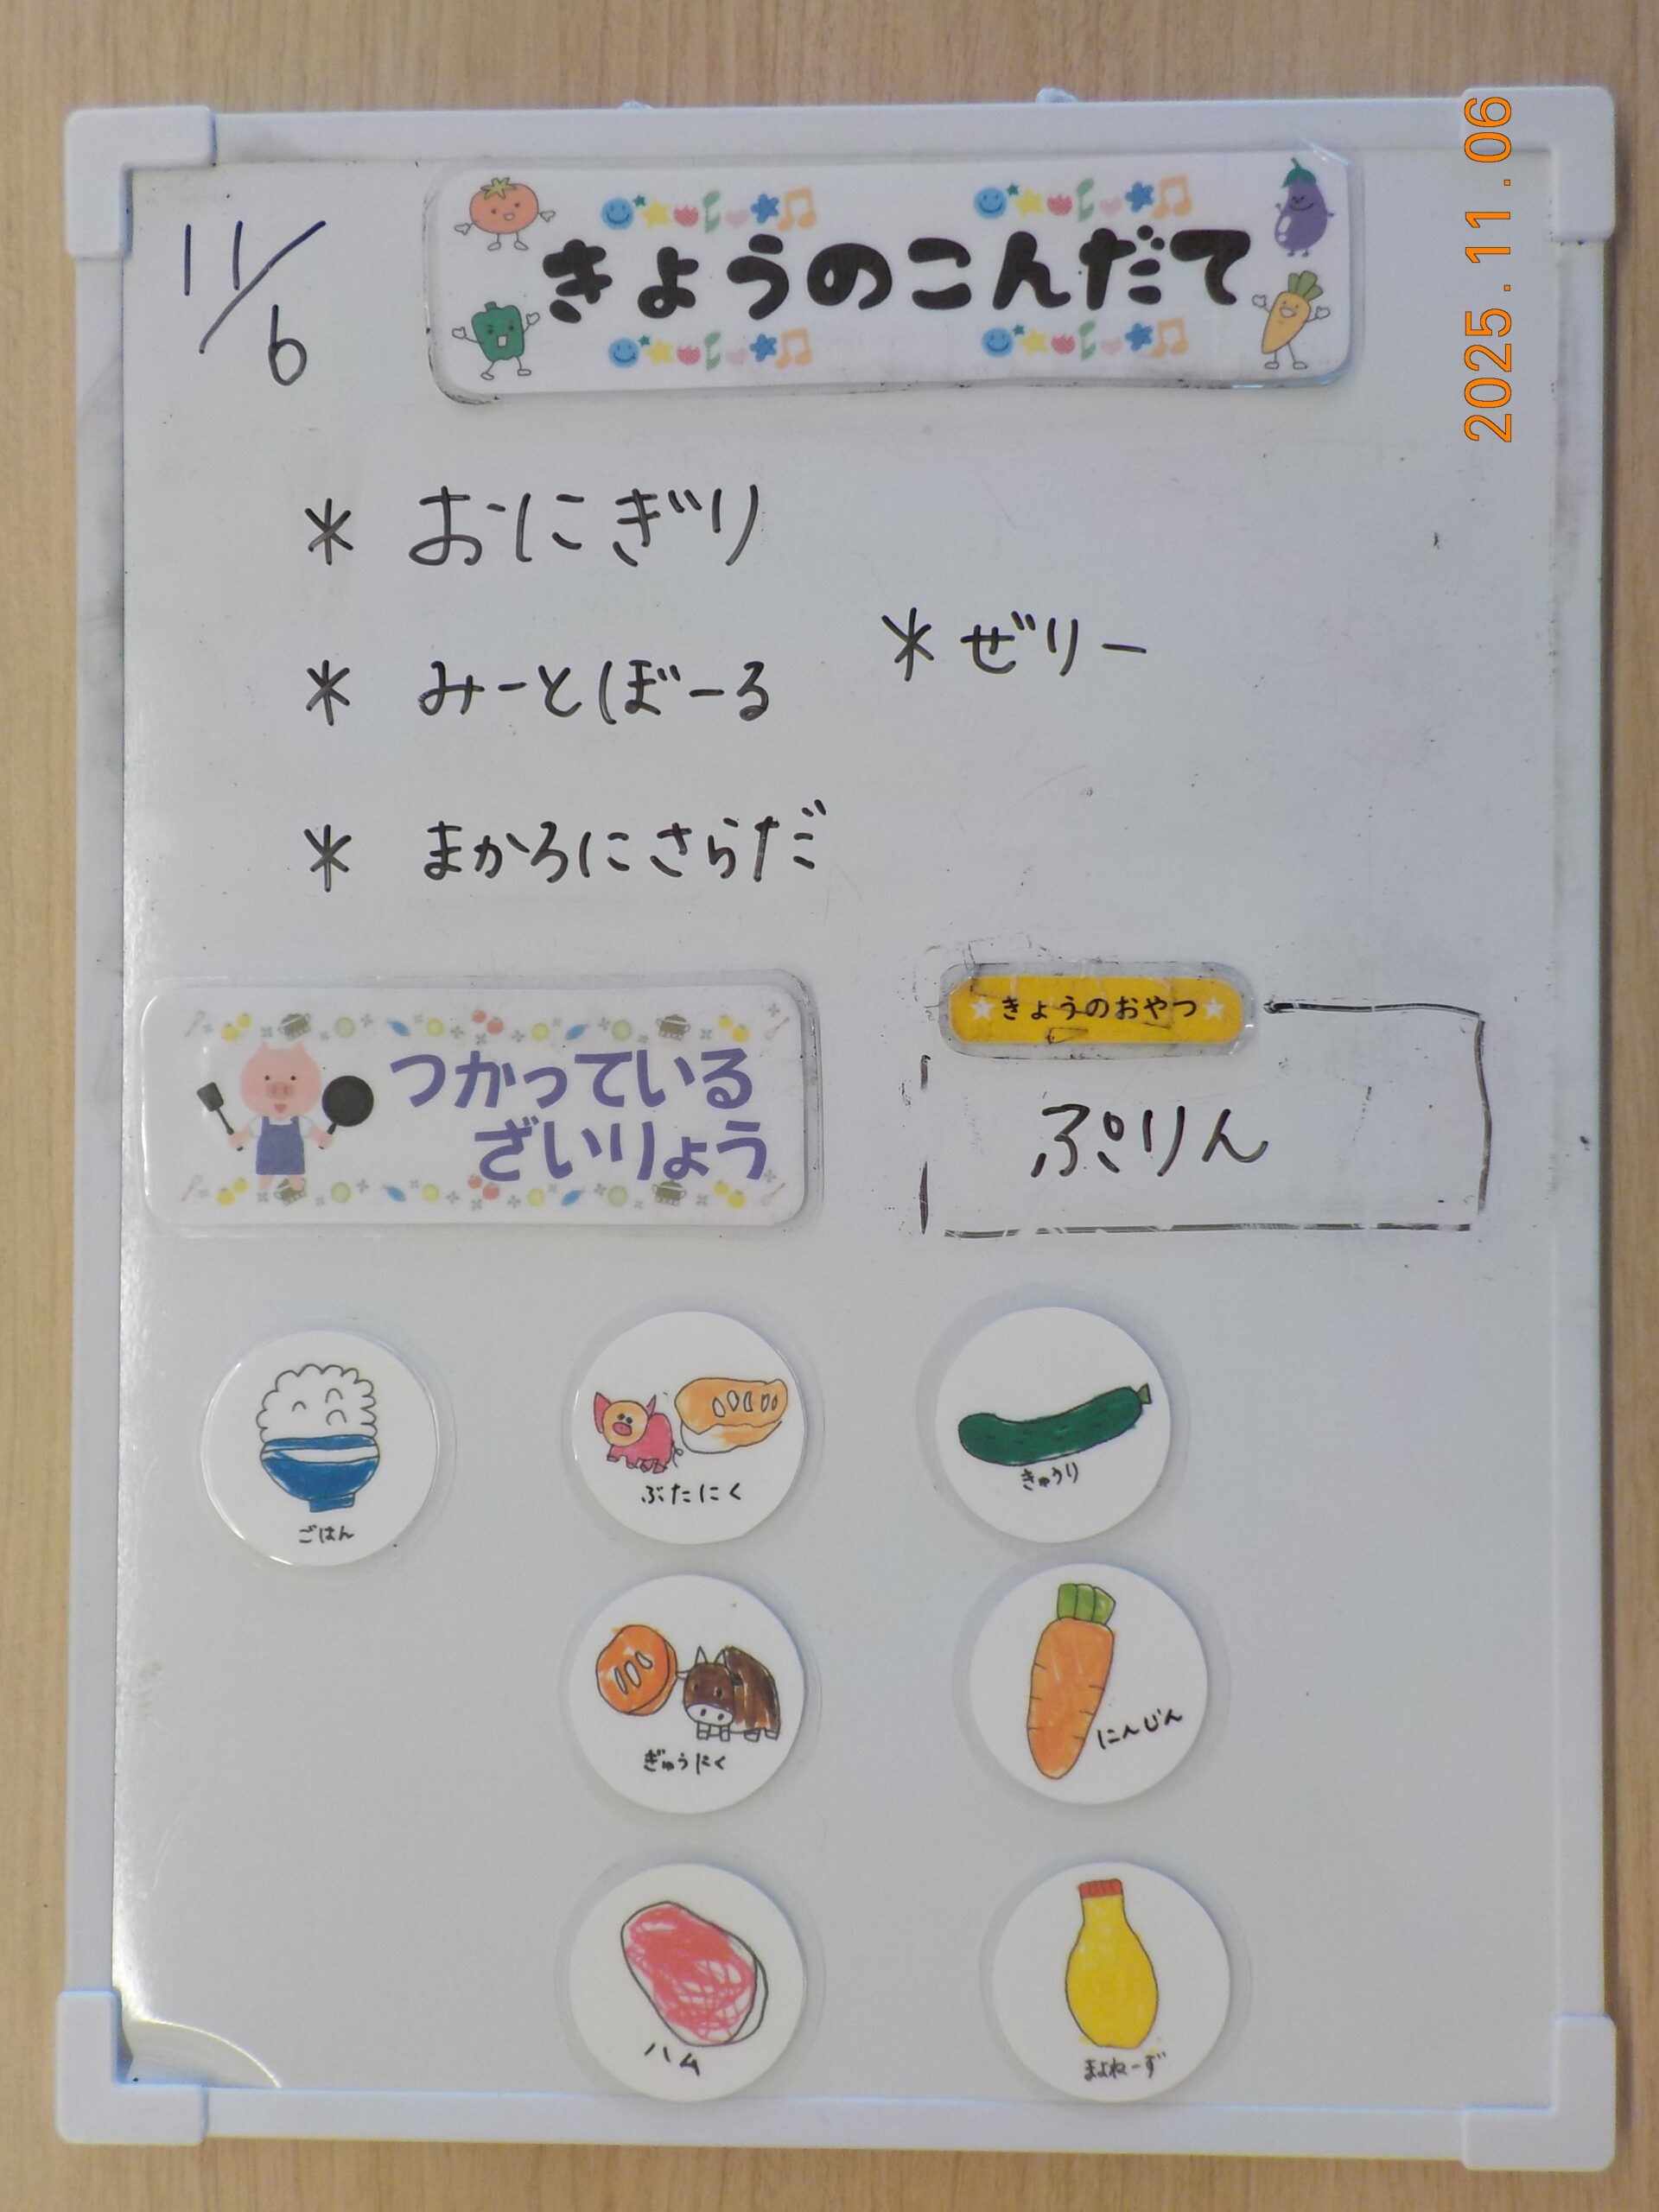 11/6
きょうのこんだて
2025.11.06
* おにぎり
* みーとぼーる
* ぜりー
* まかろにさらだ
つかっている
ざいりょう
★きょうのおやつ★
ぷりん
ごはん
ぶたにく
きゅうり
ぎゅうにく
にんじん
ハム
まよねーず